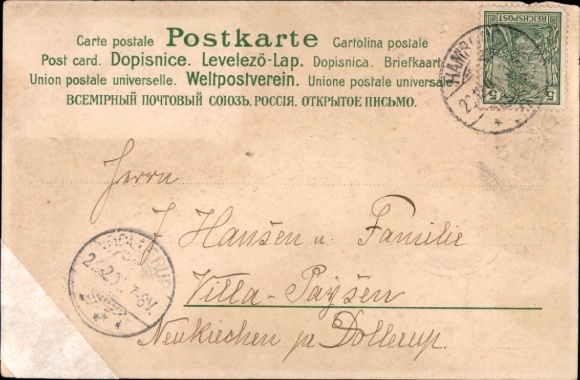 Carte postale Postkarte Cartolina postale
Post card. Dopisnice. Levelező-Lap. Dopisnica. Briefkaart
Union postale universelle. Weltpostverein. Unione postale universale
ВСЕМІРНЫЙ ПОЧТОВЫЙ СОЮЗЪ. РОССІЯ. ОТКРЫТОЕ ПИСЬМО.
REICHSPOST
5 5
HAMB
Herrn
J. Hansen u. Familie
Villa-Paysen
Neukirchen pr Dollerup.